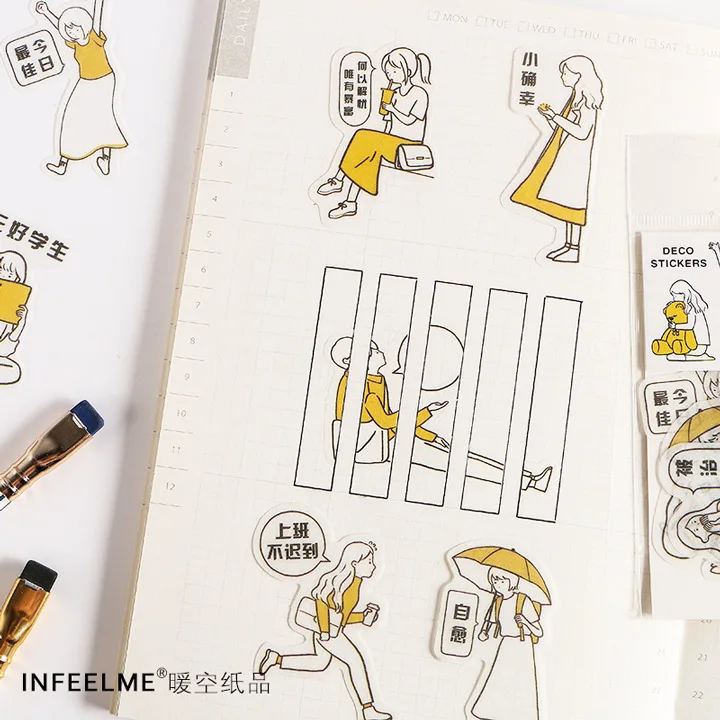 DAILY
MON TUE WED THU FRI SAT SUN
今日
最佳
何以解忧
唯有暴富
小确幸
好学生
1
2
3
4
5
6
7
8
9
10
11
12
DECO
STICKERS
今日
最佳
被治
上班
不迟到
自愈
20
21
22
INFEELME®暖空纸品